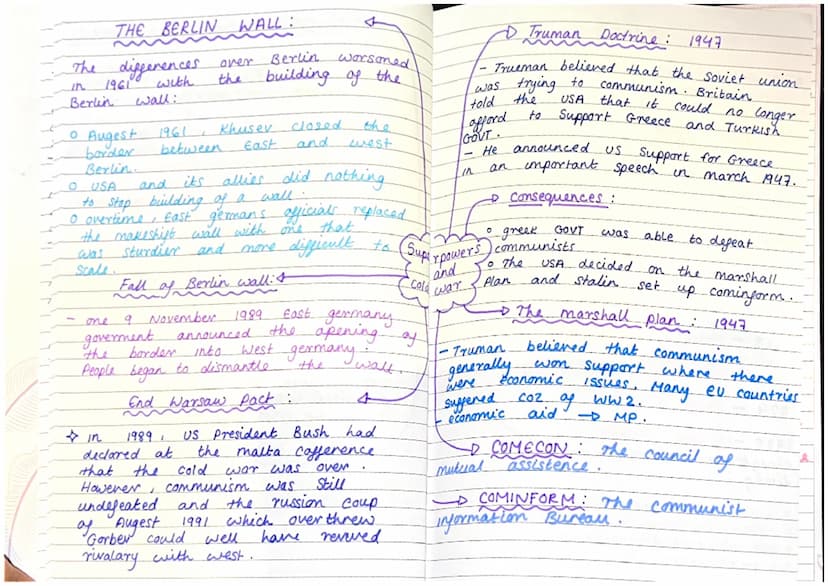 THE BERLIN WALL:
The differences over Berlin worsoned
in 1961 with the building of the
Berlin wall:
Augest 1961, Khusev closed the
border between East and west
Berlin.
USA and its allies did nothing
to stop building of a wall.
overtime, East germans officials replaced
the makeshift wall with one that
was sturdier and more difficult to
scale.
Fall of Berlin wall:
- one 9 November 1989 East germany
goverment announced the opening of
the border into West germany.
People began to dismantle the wall.
End Warsaw Pact:
in 1989, US President Bush had
declared at the malta cofference
that the cold war was over.
However, communism was still
undefeated and the russion coup
of Augest 1991 which overthrew
Gorbev could well have revived
rivalary with west.
Superpowers
and
cold war
Truman Doctrine: 1947
- Trueman believed that the soviet union
was trying to communism. Britain
told the USA that it could no longer
afford to support Greece and Turkish
GOVT.
- He announced US support for Greece
in an important speech in march 1947.
Consequences:
greek GOVT was able to defeat
communists
The USA decided on the marshall
Plan and Stalin set up cominform.
The marshall Plan: 1947
- Truman believed that communism
generally won support where there
were economic issues. Many EU countries
suffered coz of WW2.
- economic aid → MP.
COMECON: The council of
mutual assistence.
COMINFORM: The communist
information Bureau.